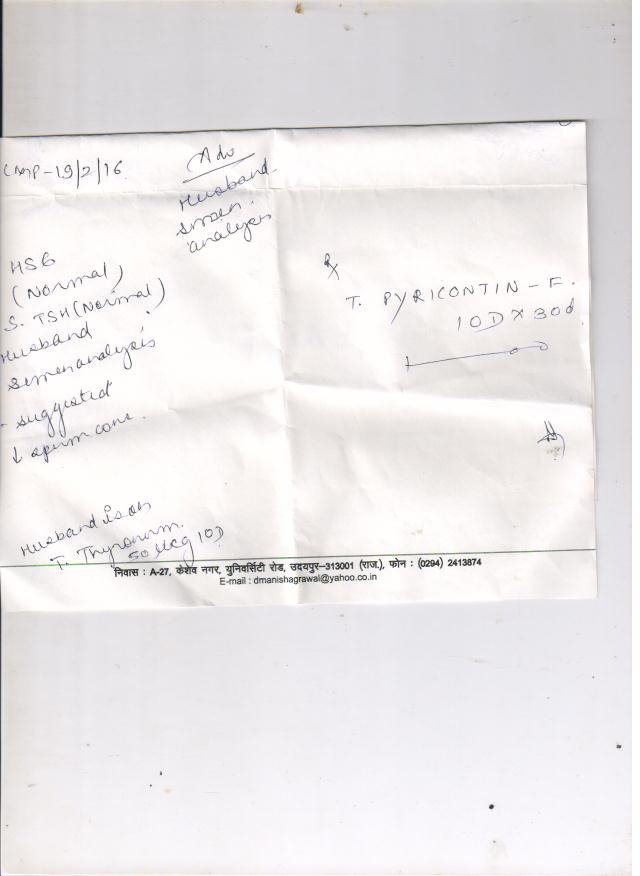 LMP-19/2/16
Adv
Husband
semen
analysis
HSG
(Normal)
S. TSH (Normal)
Husband
semen analysis
- suggested
↓ sperm conc.
Husband is on
T. Thyronorm
50 mcg 1OD
Rx
T. PYRICONTIN - F.
1OD X 30d
निवास : A-27, केशव नगर, युनिवर्सिटी रोड, उदयपुर–313001 (राज.), फोन : (0294) 2413874
E-mail : dmanishagrawal@yahoo.co.in